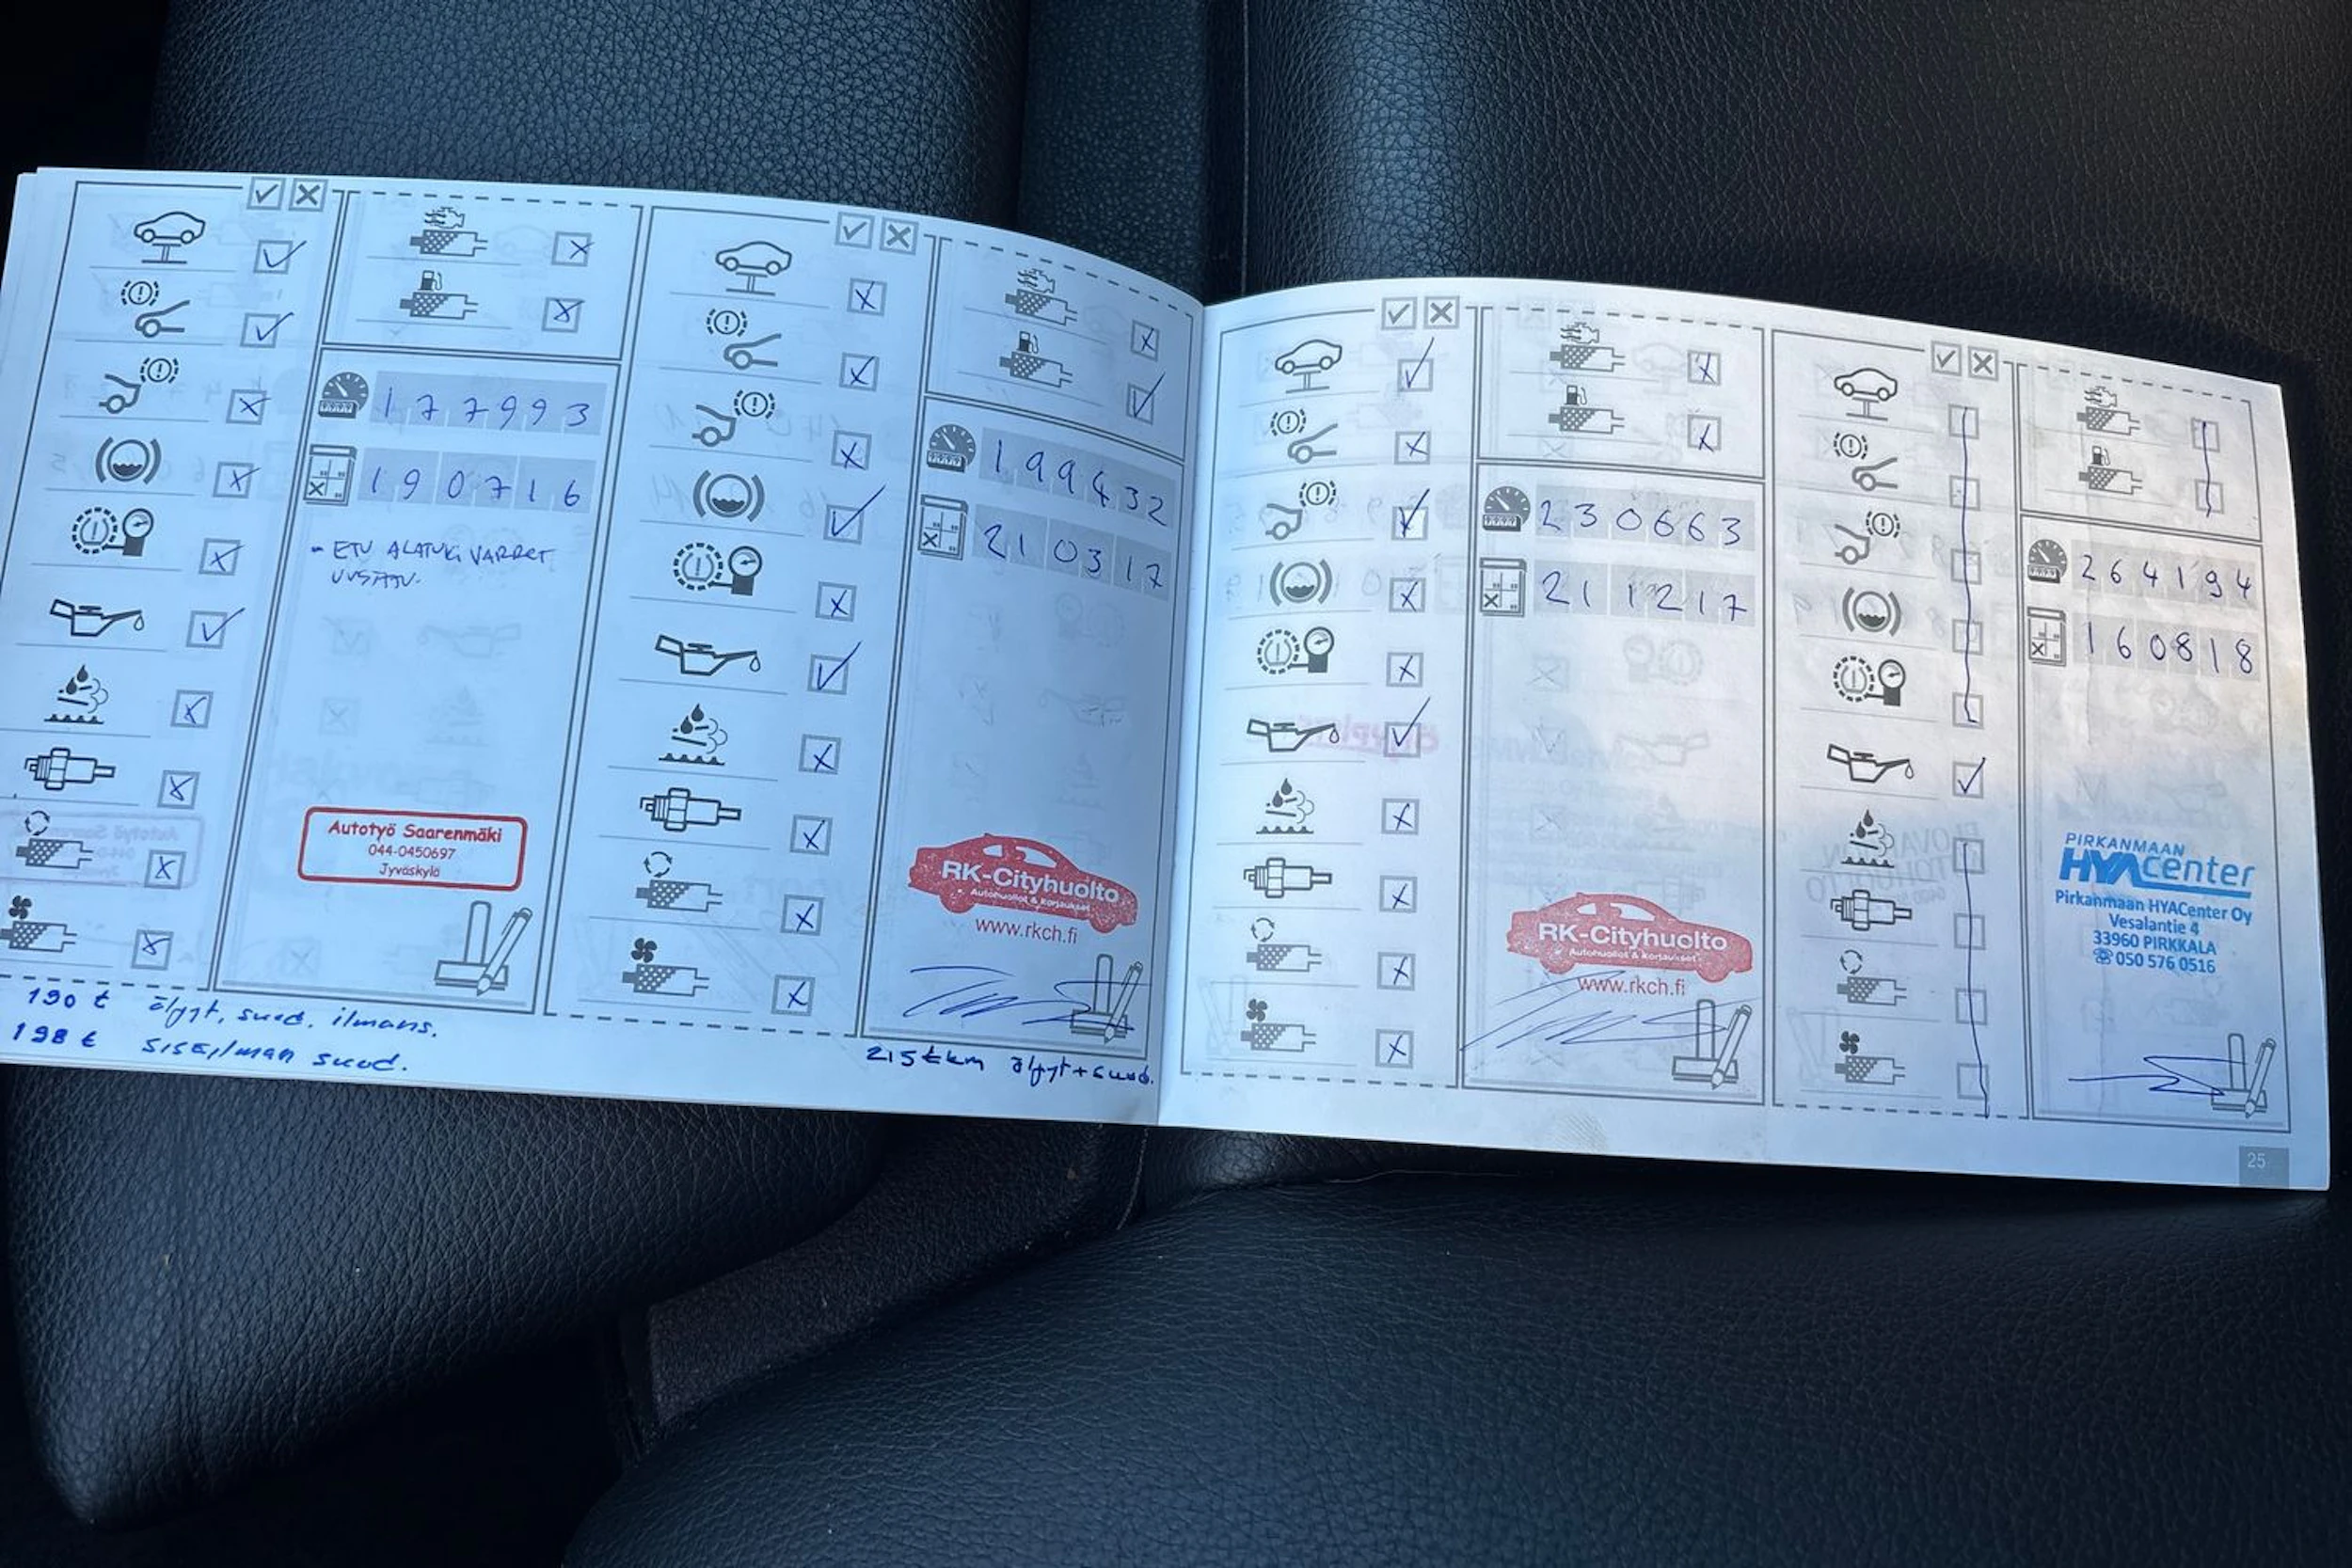 177993
190716
- ETU ALATUKIVARRET
UUSITTU.
Autotyö Saarenmäki
044-0450697
Jyväskylä
190 t öljyt, suod. ilmans.
198 t sisäilman suod.
199432
210317
RK-Cityhuolto
Autohuollot & Korjaukset
www.rkch.fi
215 tkm öljyt + suod.
230663
211217
RK-Cityhuolto
Autohuollot & Korjaukset
www.rkch.fi
264194
160818
PIRKANMAAN
HYAcenter
Pirkanmaan HYACenter Oy
Vesalantie 4
33960 PIRKKALA
☎ 050 576 0516
25